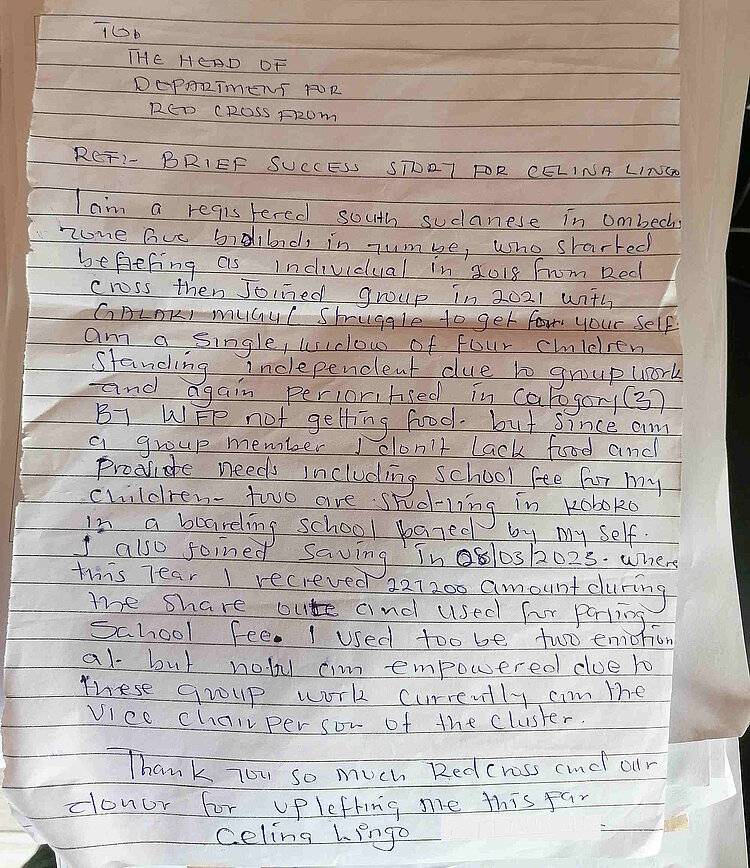 TO,
THE HEAD OF
DEPARTMENT FOR
RED CROSS FROM
REF:- BRIEF SUCCESS STORY FOR CELINA LINGO
I am a registered south sudanese in Ombechi
zone five bidibidi in yumbe, who started
befiefing as individual in 2018 from Red
cross then Joined group in 2021 with
struggle to get for your self.
am a single, widow of four children
standing independent due to group work
and again perioritised in Catogory (3)
BY WFP not getting food. but since am
a group member I don't lack food and
needs including school fee for my
children- two are studying in Koboko
in a boarding school payed by my self.
I also joined saving in 08/03/2023. where
this year I recieved 221200 amount during
the share oute and used for paying
School fee. I used too be two emotion
al- but am empowered due to
these group work currently am the
vice chair person of the cluster.
Thank you so much RedCross and our
donor for uplefting me this far
Celina Lingo